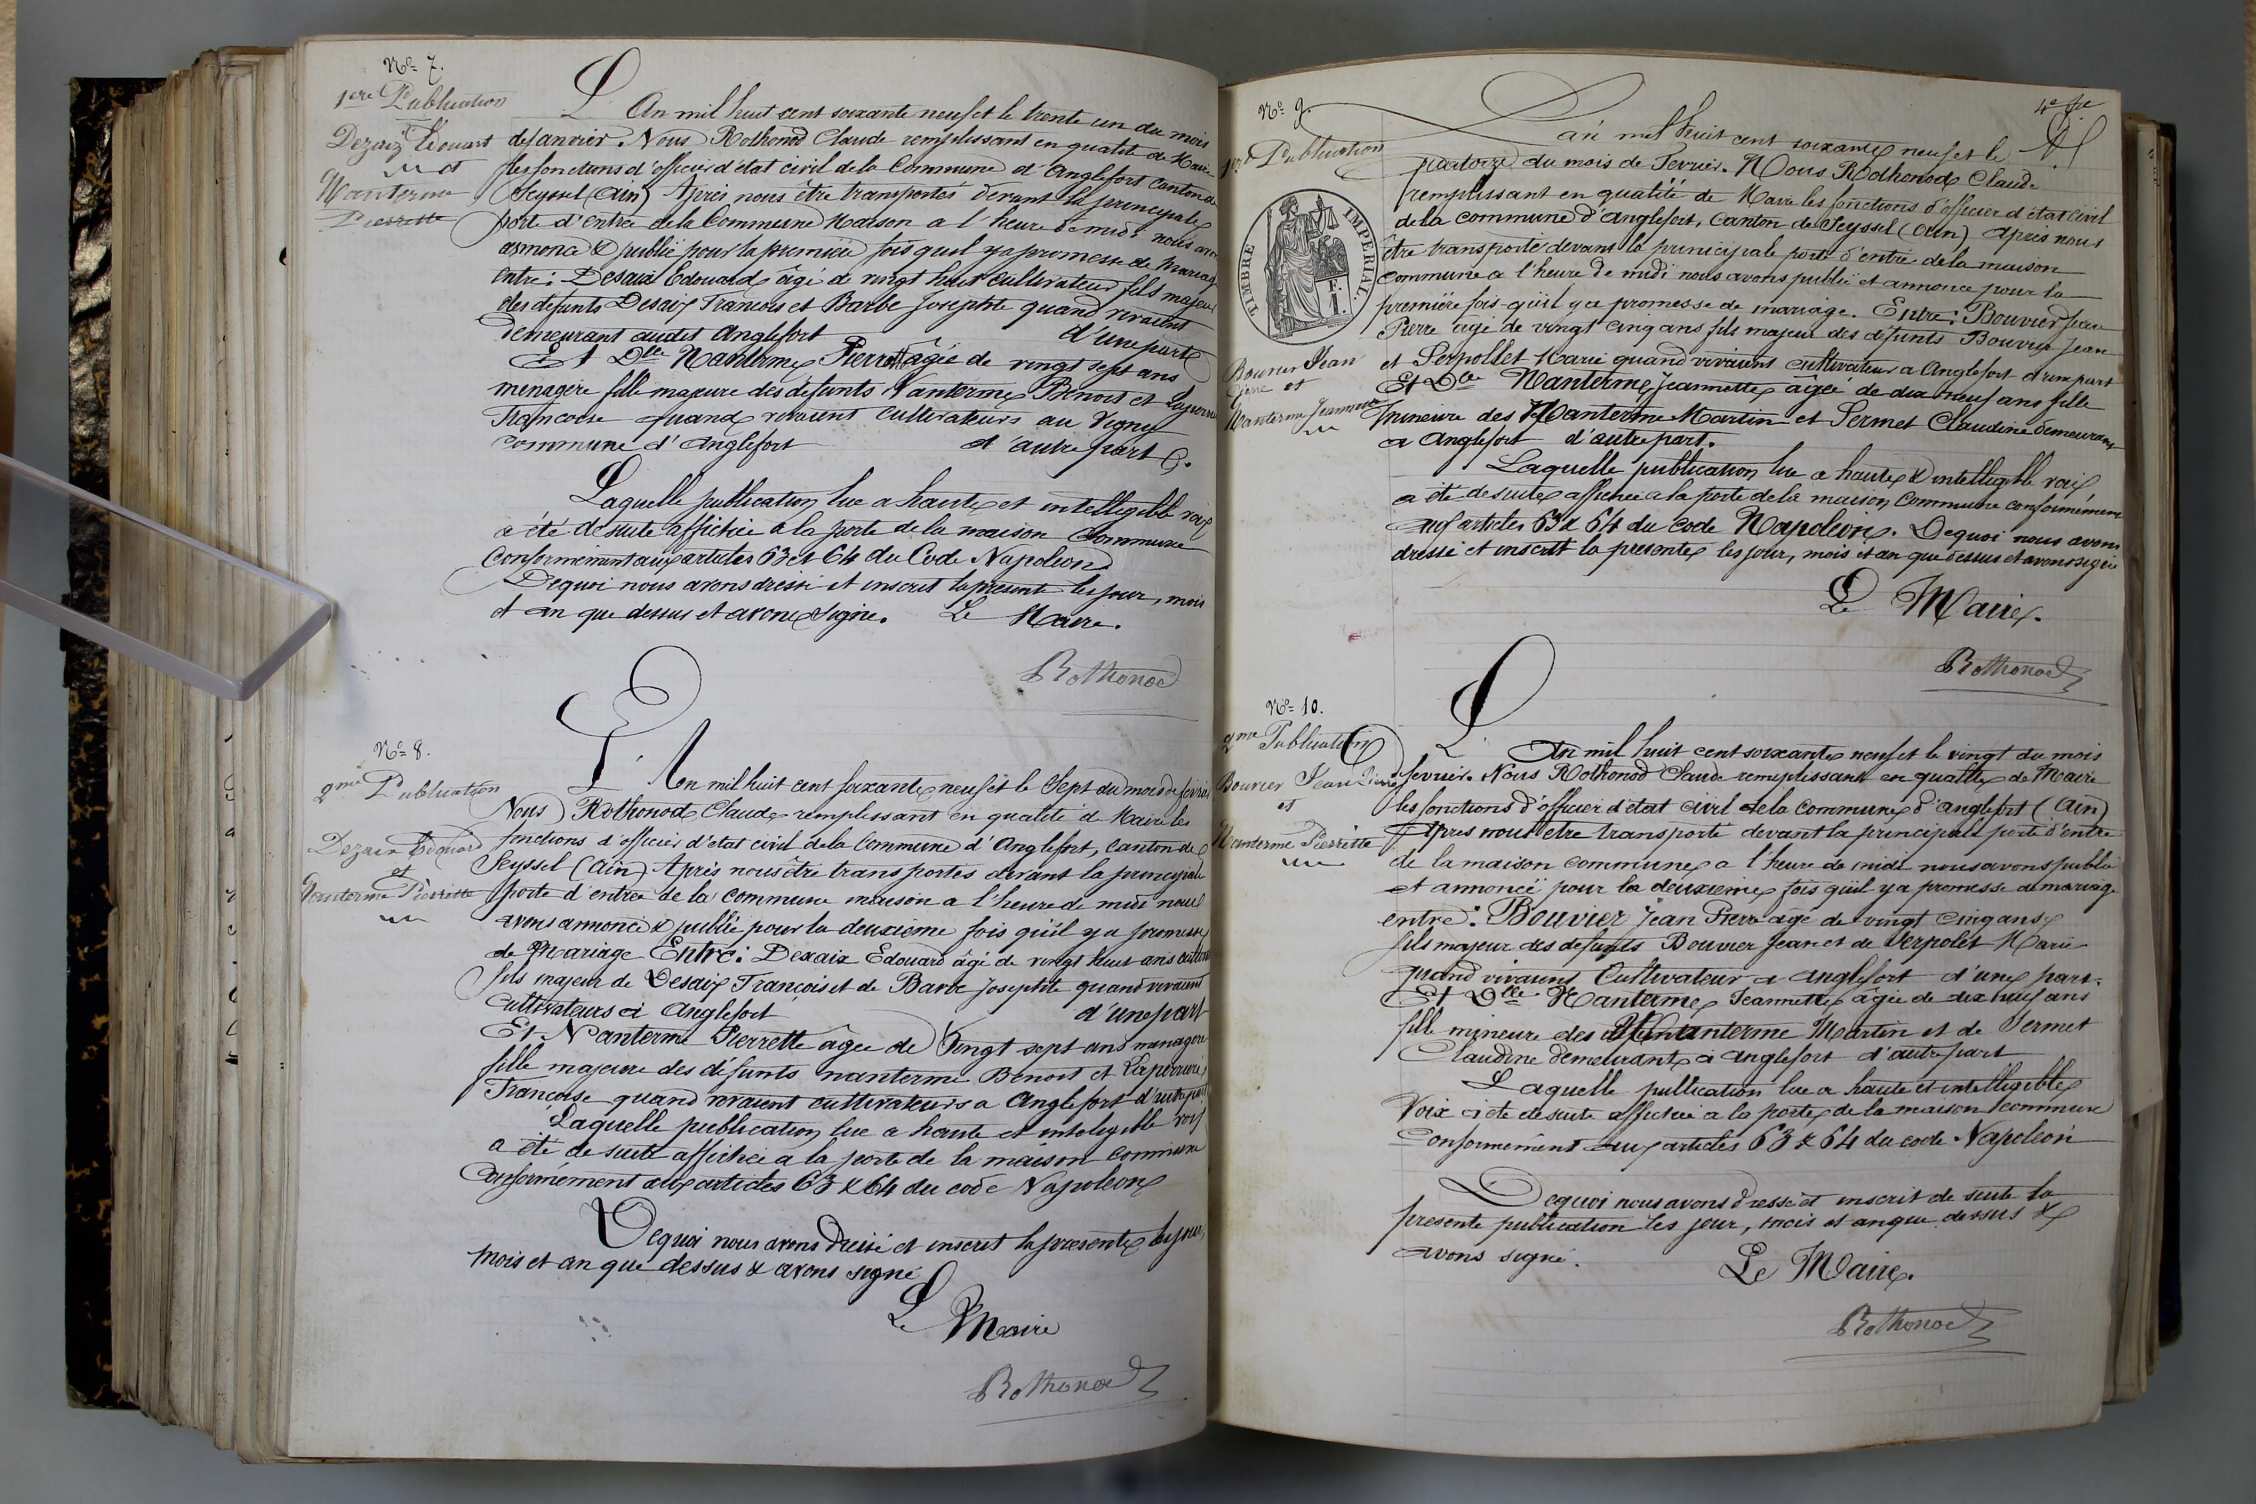 Nº 7.
1ere Publication
Dezaix Edouart
et
Nanterme
Pierrette
L'An mil huit cent soixante neuf et le trente un du mois
de Janvier. Nous Rothonod Claude remplissant en qualité de Maire
les fonctions d'officier d'état civil de la Commune d'Anglefort canton de
Seyssel (Ain) Après nous être transportés devant la principale
porte d'entrée de la Commune Maison a l'heure de midi nous avons
annoncé & publié pour la première fois qu'il y a promesse de mariage
entre : Desaix Edouard âgé de vingt huit cultivateur fils majeur
des défunts Desaix François et Barbe Josephte quand vivaient
demeurant audit Anglefort d'une part
Et Dlle Nanterme Pierrette âgée de vingt sept ans
menagère fille majeure des défunts Nanterme Benoit et
Françoise quand vivaient cultivateurs au Vigny
commune d'Anglefort d'autre part
Laquelle publication lue a haute et intelligible voix
a été de suite affichée à la porte de la maison Commune
Conformément aux articles 63 et 64 du Code Napoléon
Dequoi nous avons dressé et inscrit la présente les jour, mois
et an que dessus et avons signé. Le Maire.
Rothonod
Nº 8.
2me Publication
Dezaix Edouard
et
Nanterme Pierrette
L'An mil huit cent soixante neuf et le Sept du mois de fevrier
Nous Rothonod Claude remplissant en qualité de Maire les
fonctions d'officier d'état civil de la Commune d'Anglefort, canton de
Seyssel (Ain) Après nous être transportés devant la principale
porte d'entrée de la commune maison a l'heure de midi nous
avons annoncé & publié pour la deuxième fois qu'il y a promesse
de Mariage Entre : Dexaix Edouard âgé de vingt huit ans
fils majeur de Desaix François et de Barbe Josephte quand vivaient
Cultivateurs à Anglefort d'une part
Et Nanterme Pierrette âgée de Vingt sept ans menagère
fille majeure des défunts nanterme Benoit et Laperrière
Françoise quand vivaient cultivateurs a Anglefort d'autre part
Laquelle publication lue a haute et inteligible voix
a été de suite affichée a la porte de la maison commune
Conformément aux articles 63 & 64 du code Napoléon
Dequoi nous avons dressé et inscrit la présente les jour,
mois et an que dessus & avons signé
Le Maire
Rothonod
4e fe
Nº 9.
1ere Publication
TIMBRE IMPERIAL.
F. 1
Bouvier Jean
Pierre et
Nanterme Jeannette
L'an mil huit cent soixante neuf et le
quatorze du mois de Fevrier. Nous Rothonod Claude
remplissant en qualité de Maire les fonctions d'officier d'état civil
de la commune d'Anglefort, Canton de Seyssel (Ain) Après nous
être transporté devant la principale porte d'entrée de la maison
commune a l'heure de midi nous avons publié et annoncé pour la
première fois qu'il y a promesse de mariage. Entre : Bouvier Jean
Pierre âgé de vingt cinq ans fils majeur des défunts Bouvier Jean
et Serpollet Marie quand vivaient cultivateur a Anglefort d'une part
Et Dlle Nanterme Jeannette âgée de dix neuf ans fille
mineure des Nanterme Martin et Sermet Claudine demeurant
a Anglefort d'autre part.
Laquelle publication lue a haute & intelligible voix
a été de suite affichée a la porte de la maison Commune conformément
aux articles 63 & 64 du code Napoléon. Dequoi nous avons
dressé et inscrit la présente les jour, mois et an que dessus et avons signé
Le Maire.
Rothonod
Nº 10.
2me Publication
Bouvier Jean Pierre
et
Nanterme Pierrette
L'An mil huit cent soixante neuf et le vingt du mois
fevrier. Nous Rothonod Claude remplissant en qualité de Maire
les fonctions d'officier d'état civil de la Commune d'Anglefort (Ain)
Apres nous être transporté devant la principale porte d'entrée
de la maison commune a l'heure de midi nous avons publié
et annoncé pour la deuxième fois qu'il y a promesse de mariage
entre : Bouvier Jean Pierre âgé de vingt cinq ans
fils majeur des defunts Bouvier Jean et de Serpolet Marie
quand vivaient Cultivateur a Anglefort d'une part.
Et Dlle Nanterme Jeannette âgée de dix neuf ans
fille mineure des Nanterme Martin et de Sermet
Claudine demeurant à Anglefort d'autre part
Laquelle publication lue a haute et intelligible
Voix a été de suite affichée a la porte de la maison commune
Conformément aux articles 63 & 64 du code Napoléon
Dequoi nous avons dressé et inscrit de suite la
présente publication les jour, mois et an que dessus &
avons signé. Le Maire.
Rothonod